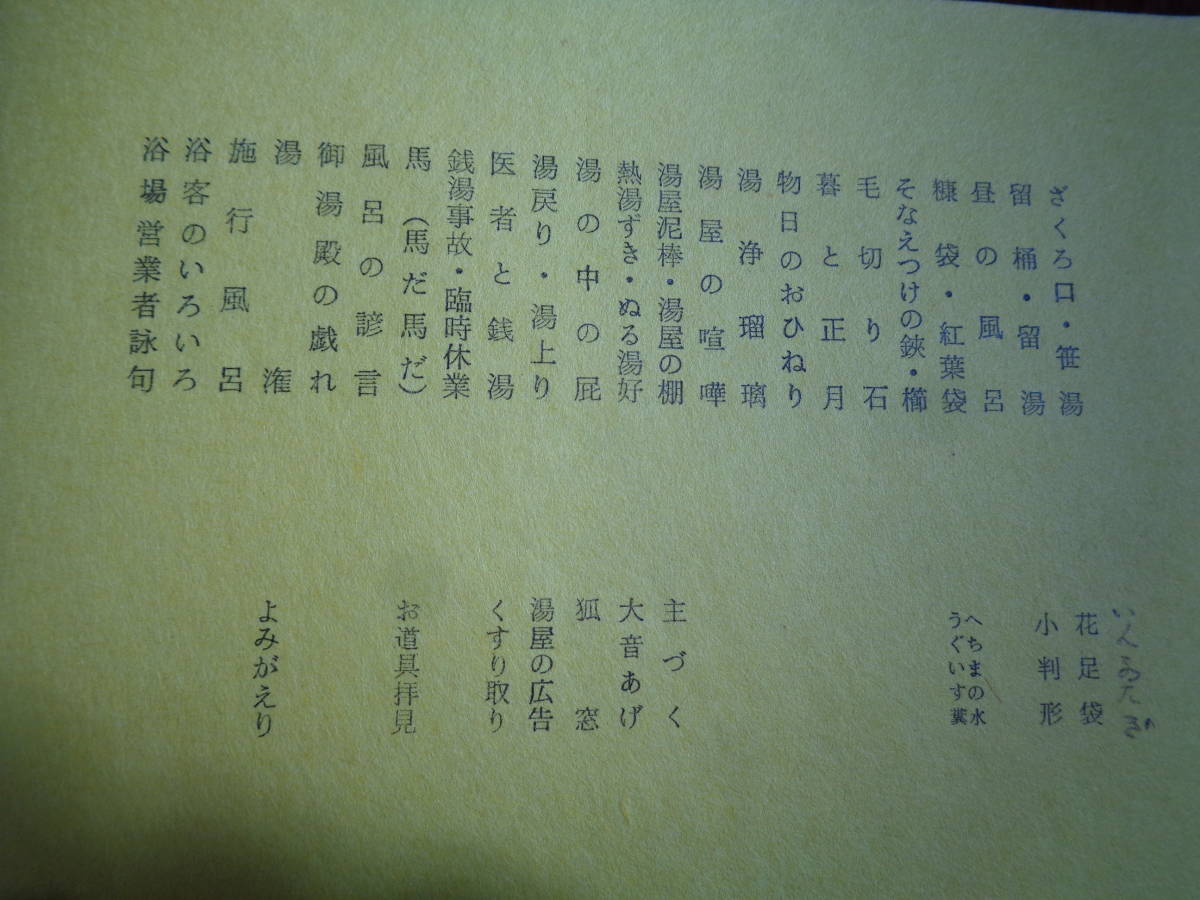 ざくろ口・笹湯
留桶・留湯
昼の風呂
糠袋・紅葉袋
そなえつけの鋏・櫛
毛切り石
暮と正月
物日のおひねり
湯浄瑠璃
湯屋の喧嘩
湯屋泥棒・湯屋の棚
熱湯ずき・ぬる湯好
湯の中の屁
湯戻り・湯上り
医者と銭湯
銭湯事故・臨時休業
馬（馬だ馬だ）
風呂の諺言
御湯殿の戯れ
湯潅
施行風呂
浴客のいろいろ
浴場営業者詠句
花足袋
小判形
へちまの水
うぐいす糞
主づく
大音あげ
狐窓
湯屋の広告
くすり取り
お道具拝見
よみがえり